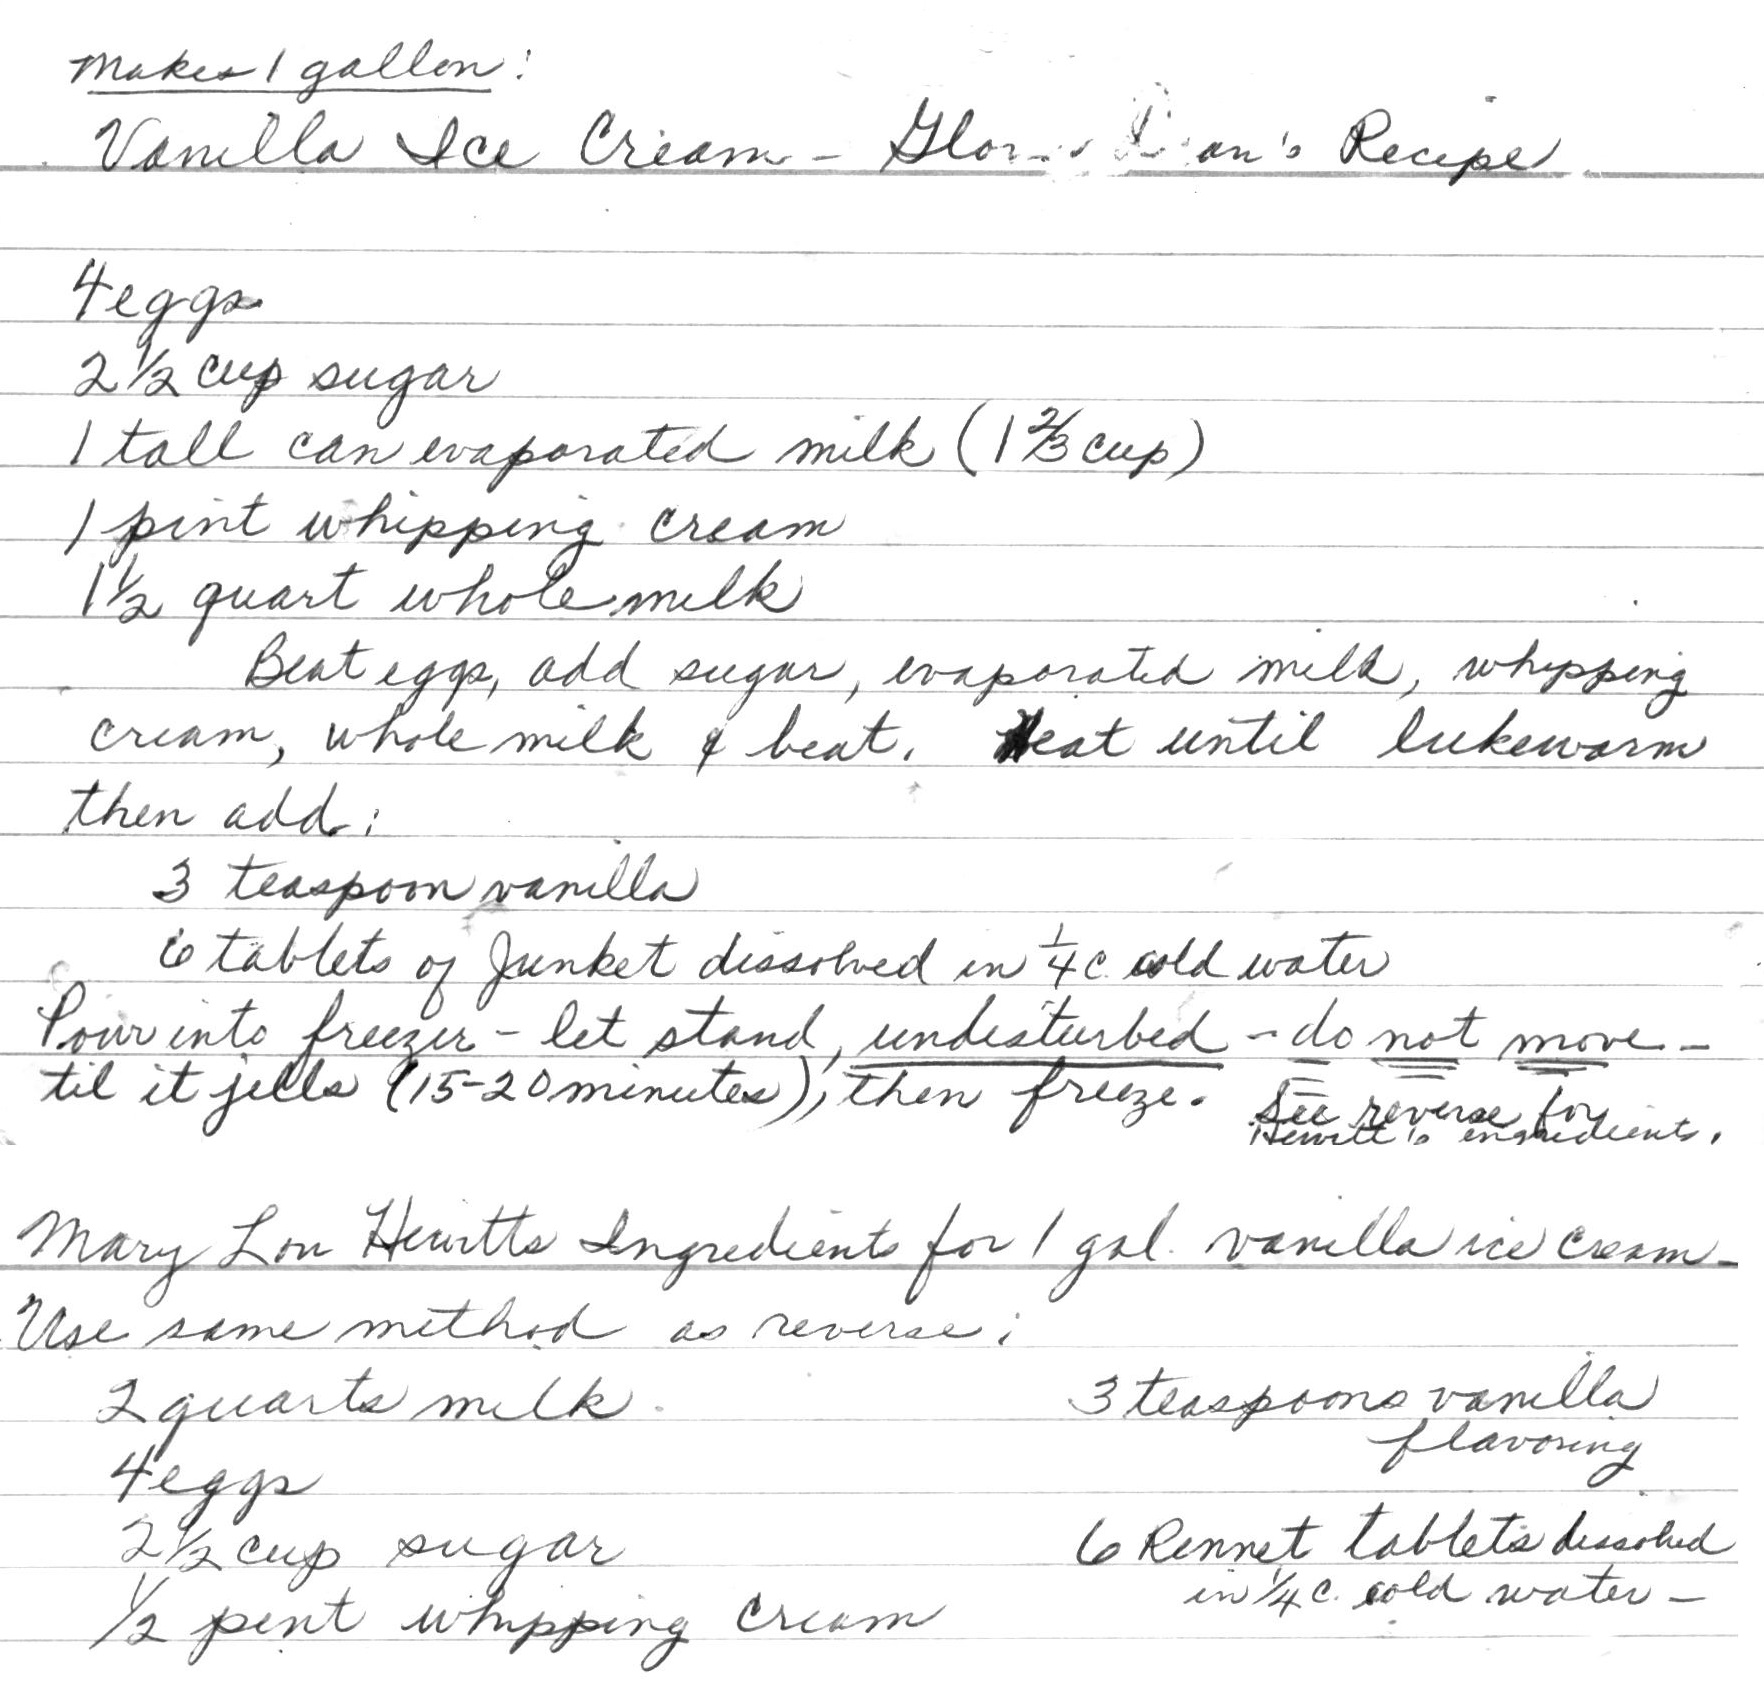 Makes 1 gallon:
Vanilla Ice Cream - Recipe
4 eggs
2 1/2 cup sugar
1 tall can evaporated milk (1 2/3 cup)
1 pint whipping cream
1 1/2 quart whole milk
Beat eggs, add sugar, evaporated milk, whipping
cream, whole milk & beat. Heat until lukewarm
then add:
3 teaspoon vanilla
6 tablets of Junket dissolved in 1/4 c. cold water
Pour into freezer - let stand, undisturbed - do not move -
til it jells (15-20 minutes), then freeze. See reverse for
Hewitt's ingredients.
Mary Lou Hewitts Ingredients for 1 gal. vanilla ice cream -
Use same method as reverse:
2 quarts milk
4 eggs
2 1/2 cup sugar
1/2 pint whipping cream
3 teaspoons vanilla
flavoring
6 Rennet tablets dissolved
in 1/4 c. cold water -